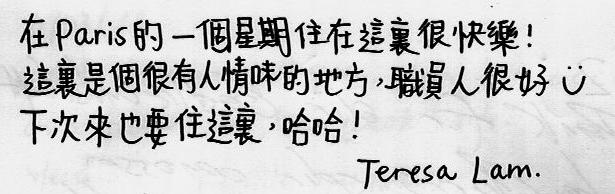 在Paris的一個星期住在這裏很快樂!
這裏是個很有人情味的地方,職員人很好 ü
下次來也要住這裏,哈哈!
Teresa Lam.